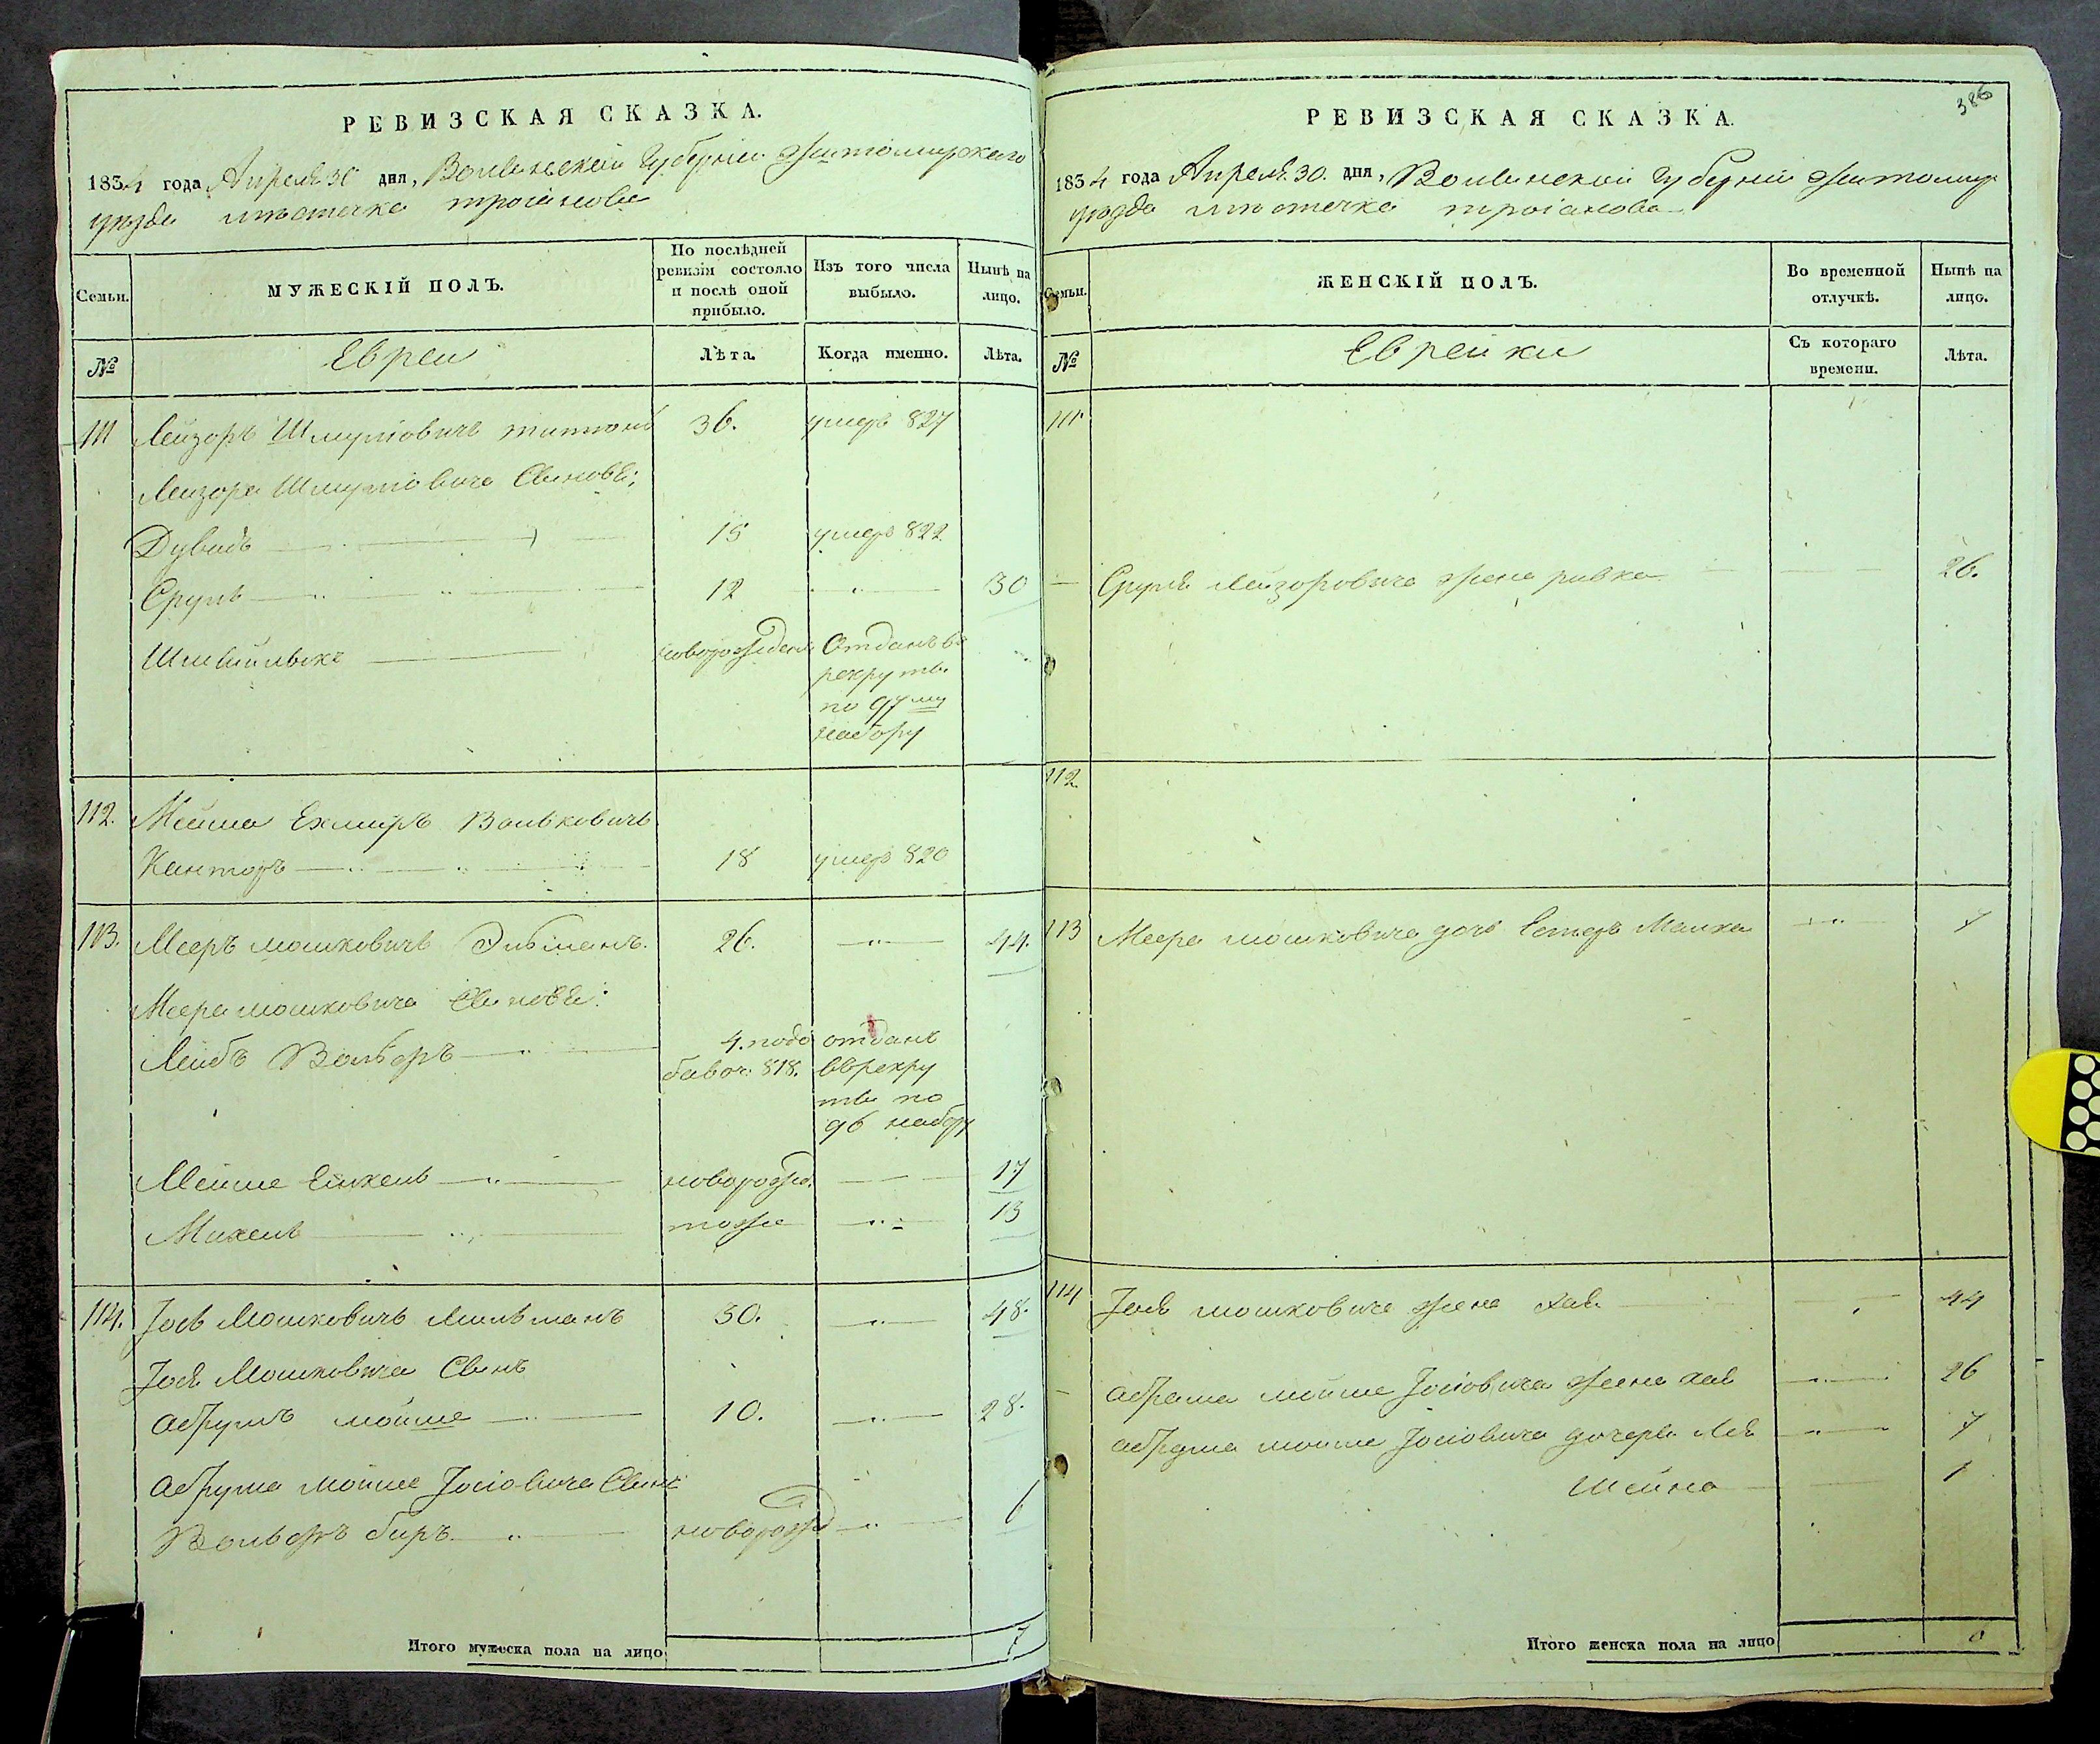 РЕВИЗСКАЯ СКАЗКА.
1834 года Апреля 30 дня, Волынской Губерніи Житомирскаго
уѣзда мѣстечка Троіанова
Семьи.
МУЖЕСКІЙ ПОЛЪ.
По послѣдней ревизіи состояло и послѣ оной прибыло.
Изъ того числа выбыло.
Нынѣ на лицо.
№
Евреи
Лѣта.
Когда именно.
Лѣта.
111 Лейзоръ Шмулiовичъ 36. умеръ 827
Лейзора Шмулiовича Сыновья:
Дувидъ 15 умеръ 822
Сруль 12 30
новорожден Отданъ въ
рекруты
по 97му
набору
112. Мойша Вольковичъ
Канторъ 18 умеръ 820
113. Мееръ мошковичъ 26. 44.
Меера мошковича Сыновья:
Лейбъ Вольфъ 4. подо отданъ
бавоч: 818. въ рекру
ты по
96 набору
Мойше Янкель новорожд. 17
Михель тоже 13
114. Іось Мошковичъ Мильманъ 30. 48.
Іося Мошковича Сынъ
абрумъ мойше 10. 28.
Абрума Мойше Іосіовича Сынъ
Вольфъ беръ новорожд 6
Итого мужеска пола на лицо 7
386
РЕВИЗСКАЯ СКАЗКА.
1834 года Апреля 30. дня, Волынской Губерніи Житомир.
уѣзда мѣстечка троіанова
Семьи.
ЖЕНСКІЙ ПОЛЪ.
Во временной отлучкѣ.
Нынѣ на лицо.
№
Еврейки
Съ котораго времени.
Лѣта.
111.
Сруля Лейзоровича жена ривка 26.
112.
113 Меера мошковича дочь Естеръ Малка 7
114 Іося мошковича жена хая 44
абрама мойше Іосіовича жена хая 26
абрума мойше Іосіовича дочери Лея 7
Шейна 1
Итого женска пола на лицо